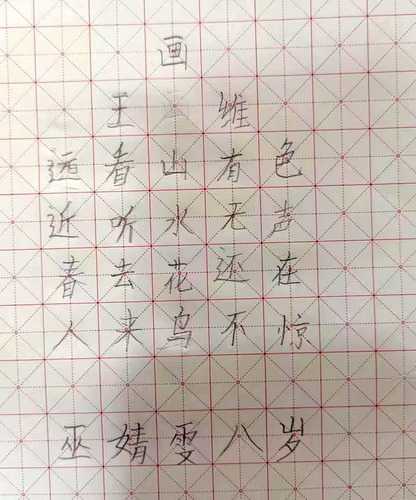 画
王维
远看山有色
近听水无声
春去花还在
人来鸟不惊
巫婧雯八岁